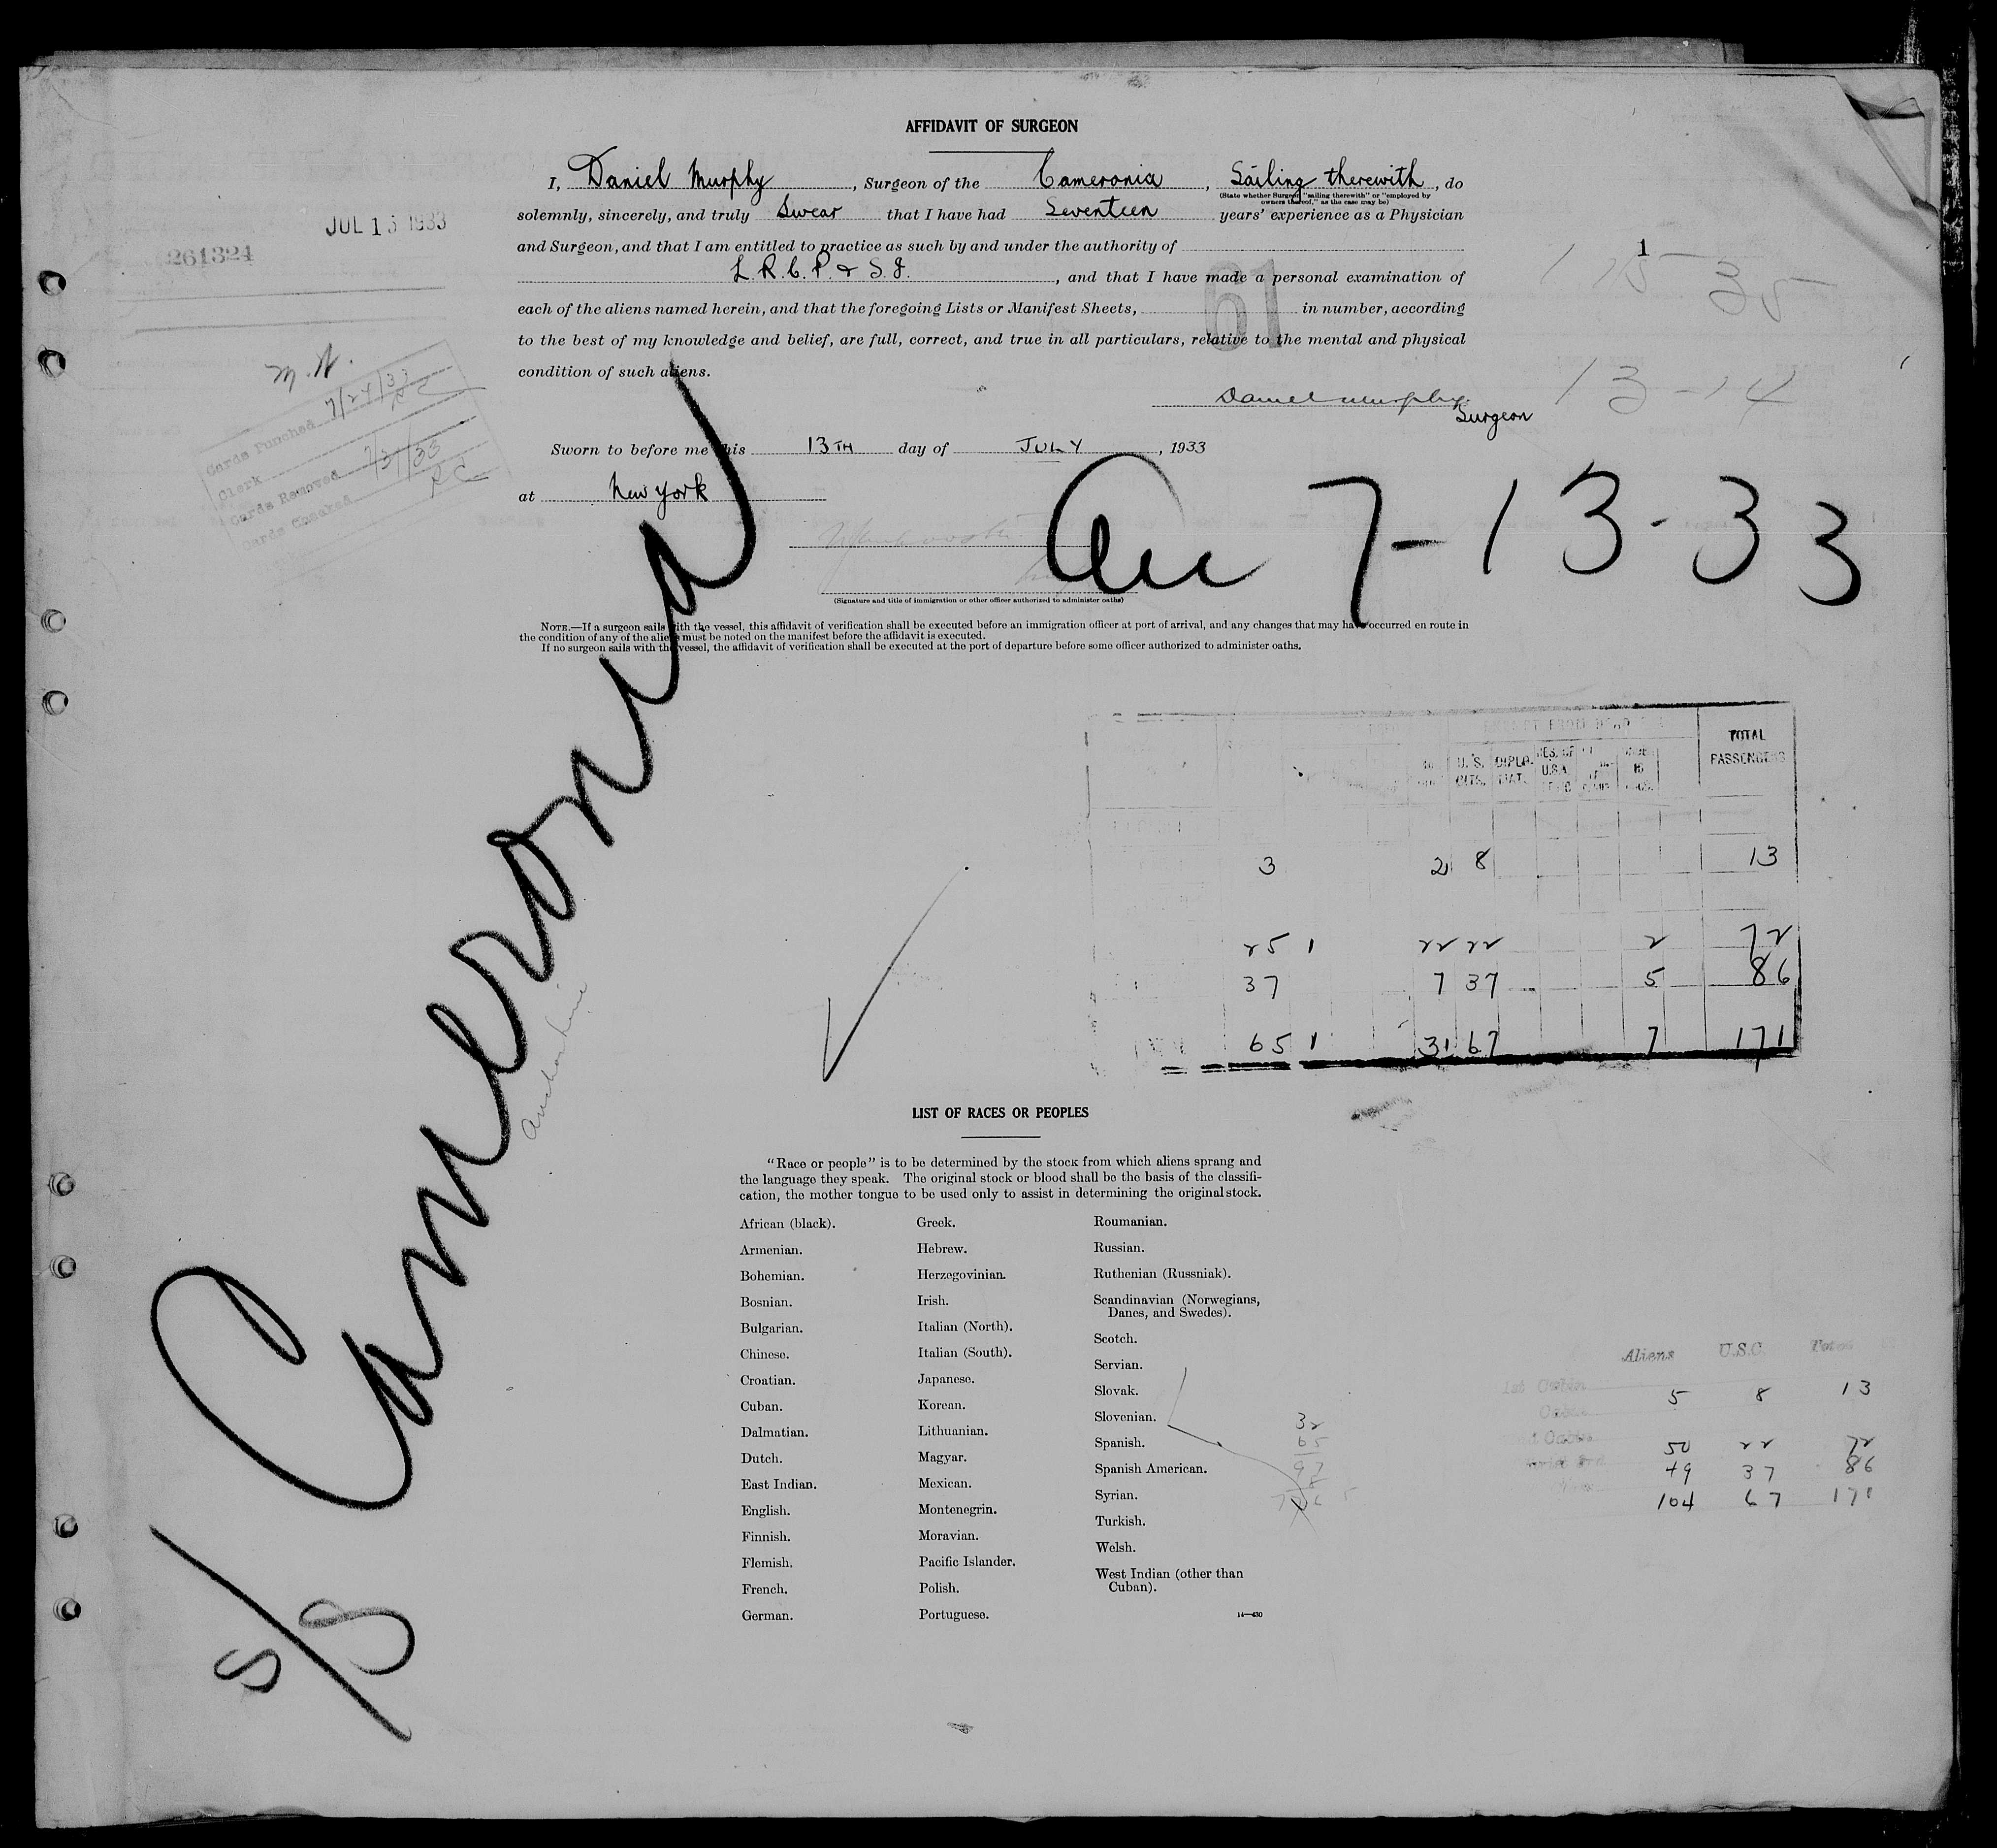 AFFIDAVIT OF SURGEON
I, Daniel Murphy, Surgeon of the Cameronia, Sailing therewith, do
(State whether Surgeon "sailing therewith" or "employed by
owners thereof," as the case may be)
solemnly, sincerely, and truly Swear that I have had Seventeen years' experience as a Physician
and Surgeon, and that I am entitled to practice as such by and under the authority of
L.R.C.P. & S.I., and that I have made a personal examination of
each of the aliens named herein, and that the foregoing Lists or Manifest Sheets, in number, according
to the best of my knowledge and belief, are full, correct, and true in all particulars, relative to the mental and physical
condition of such aliens.
Daniel Murphy
Surgeon
Sworn to before me this 13TH day of JULY, 1933
at New York
(Signature and title of immigration or other officer authorized to administer oaths)
NOTE.—If a surgeon sails with the vessel, this affidavit of verification shall be executed before an immigration officer at port of arrival, and any changes that may have occurred en route in
the condition of any of the aliens must be noted on the manifest before the affidavit is executed.
If no surgeon sails with the vessel, the affidavit of verification shall be executed at the port of departure before some officer authorized to administer oaths.
JUL 13 1933
261324
M.W.
Cards Punched 7/24/33
Clerk RC
Cards Removed 7/31/33
Cards Checked RC
61
1
13-14
7-13-33
S/S Cameronia
Anchor Line
TOTAL
PASSENGERS
U.S. CITS.
DIPLO-MAT.
3 2 8 13
25 1 22 22 2 72
37 7 37 5 86
65 1 31 67 7 171
LIST OF RACES OR PEOPLES
"Race or people" is to be determined by the stock from which aliens sprang and
the language they speak. The original stock or blood shall be the basis of the classifi-
cation, the mother tongue to be used only to assist in determining the original stock.
African (black).
Armenian.
Bohemian.
Bosnian.
Bulgarian.
Chinese.
Croatian.
Cuban.
Dalmatian.
Dutch.
East Indian.
English.
Finnish.
Flemish.
French.
German.
Greek.
Hebrew.
Herzegovinian.
Irish.
Italian (North).
Italian (South).
Japanese.
Korean.
Lithuanian.
Magyar.
Mexican.
Montenegrin.
Moravian.
Pacific Islander.
Polish.
Portuguese.
Roumanian.
Russian.
Ruthenian (Russniak).
Scandinavian (Norwegians,
Danes, and Swedes).
Scotch.
Servian.
Slovak.
Slovenian.
Spanish.
Spanish American.
Syrian.
Turkish.
Welsh.
West Indian (other than
Cuban).
14—430
32
65
97
Aliens U.S.C. Total
1st Cabin 5 8 13
50 22 72
49 37 86
104 67 171